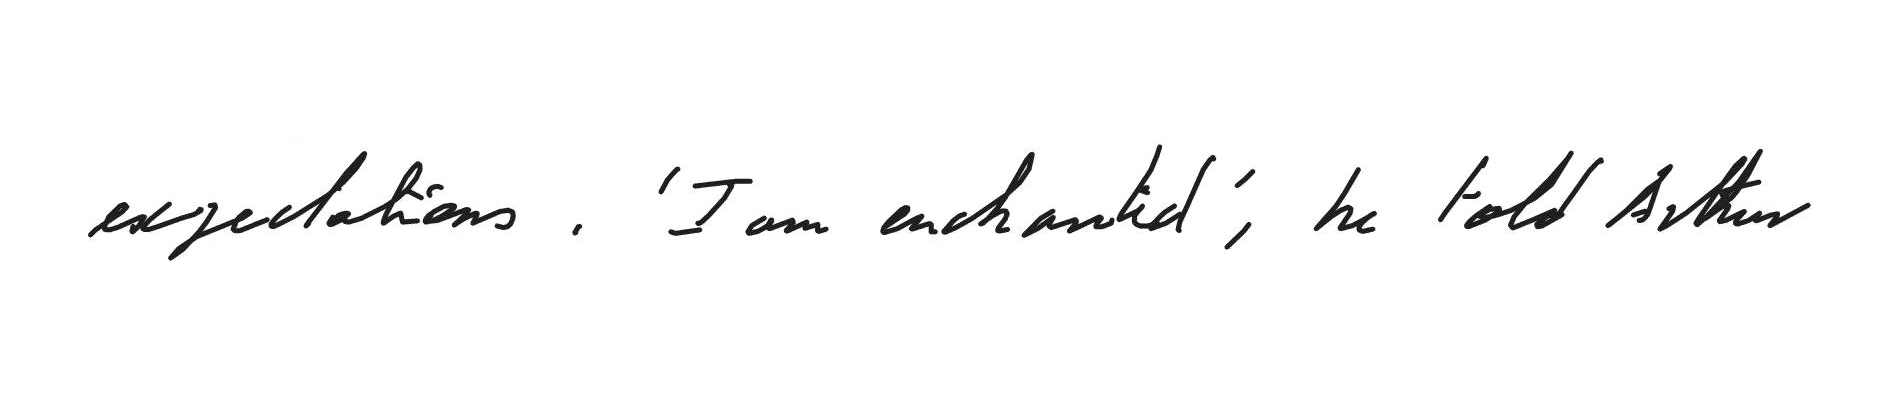 expectations. 'I am enchanted', he told Arthur